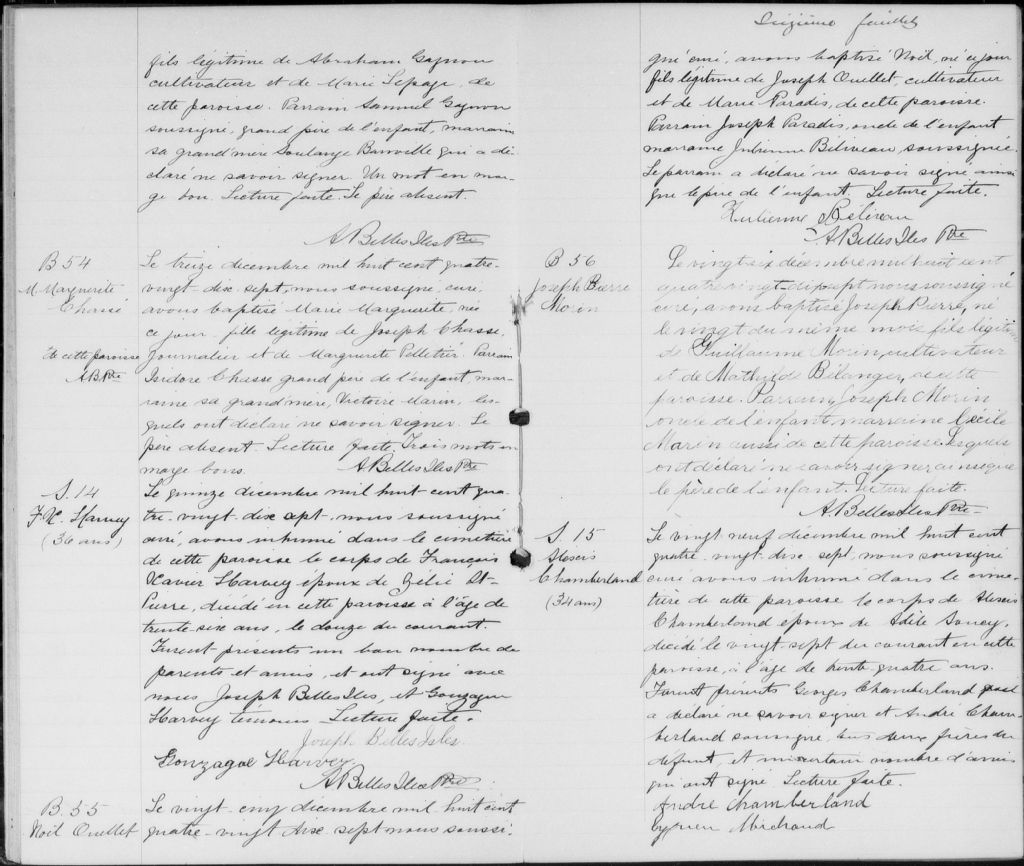 fils légitime de Abraham Gagnon
cultivateur et de Marie Lepage, de
cette paroisse. Parrain Samuel Gagnon
soussigné, grand père de l'enfant, marraine
sa grand'mère Soulange Banville qui a dé-
claré ne savoir signer. Un mot en mar-
ge bon. Lecture faite. Le père absent.
A Belles Iles Ptre
B 54
M. Marguerite
Chassé
de cette paroisse
A B Ptre
Le treize decembre mil huit cent quatre-
vingt-dix sept, nous soussigné, curé,
avons baptisé Marie Marguerite, née
ce jour, fille légitime de Joseph Chassé,
Journalier et de Marguerite Pelletier. Parrain
Isidore Chasse grand père de l'enfant, mar-
raine sa grand'mère, Victoire Marin, les-
quels ont déclaré ne savoir signer. Le
père absent. Lecture faite. Trois mots en
marge bons. A Belles Iles Ptre
S. 14
F. X. Harvey
(36 ans)
Le quinze décembre mil huit cent qua-
tre-vingt-dix sept, nous soussigné
curé, avons inhumé dans le cimetière
de cette paroisse le corps de François
Xavier Harvey epoux de Zélie St-
Pierre, décédé en cette paroisse à l'âge de
trente-six ans, le douze du courant.
Furent présents un bon nombre de
parents et amis, et ont signé avec
nous Joseph Belles Iles, et Gonzague
Harvey témoins Lecture faite.
Joseph Belles Isles
Gonzague Harvey
A Belles Iles Ptre
B. 55
Noël Ouellet
Le vingt-cinq décembre mil huit cent
quatre-vingt dix sept nous soussi-
Seizième feuillet
gné curé, avons baptisé Noël, né ce jour
fils légitime de Joseph Ouellet cultivateur
et de Marie Paradis, de cette paroisse.
Parrain Joseph Paradis, oncle de l'enfant
marraine Julienne Béliveau, soussignée.
Le parrain a déclaré ne savoir signé ainsi
que le père de l'enfant. Lecture faite.
Julienne Béliveau
A Belles Iles Ptre
B 56
Joseph Pierre
Morin
Le vingt six décembre mil huit cent
quatre vingt-dix sept nous soussigné
curé, avons baptisé Joseph Pierre, né
le vingt du même mois fils légitime
de Guillaume Morin, cultivateur
et de Mathilde Bélanger, de cette
paroisse. Parrain, Joseph Morin
oncle de l'enfant, marraine Cécile
Morin aussi de cette paroisse. Lesquels
ont déclaré ne savoir signer ainsi que
le père de l'enfant. Lecture faite.
A Belles Iles Ptre
S. 15
Chamberland
(34 ans)
Le vingt neuf décembre mil huit cent
quatre-vingt-dix sept, nous soussigné
curé avons inhumé dans le cime-
tière de cette paroisse le corps de
Chamberland epoux de Adèle Soucy,
décédé le vingt-sept du courant en cette
paroisse, à l'âge de trente-quatre ans.
Furent présents Georges Chamberland qui
a déclaré ne savoir signer et André Cham-
berland soussigné, tous deux frères du
défunt, et un certain nombre d'amis
qui ont signé Lecture faite.
André Chamberland
Cyprien Michaud